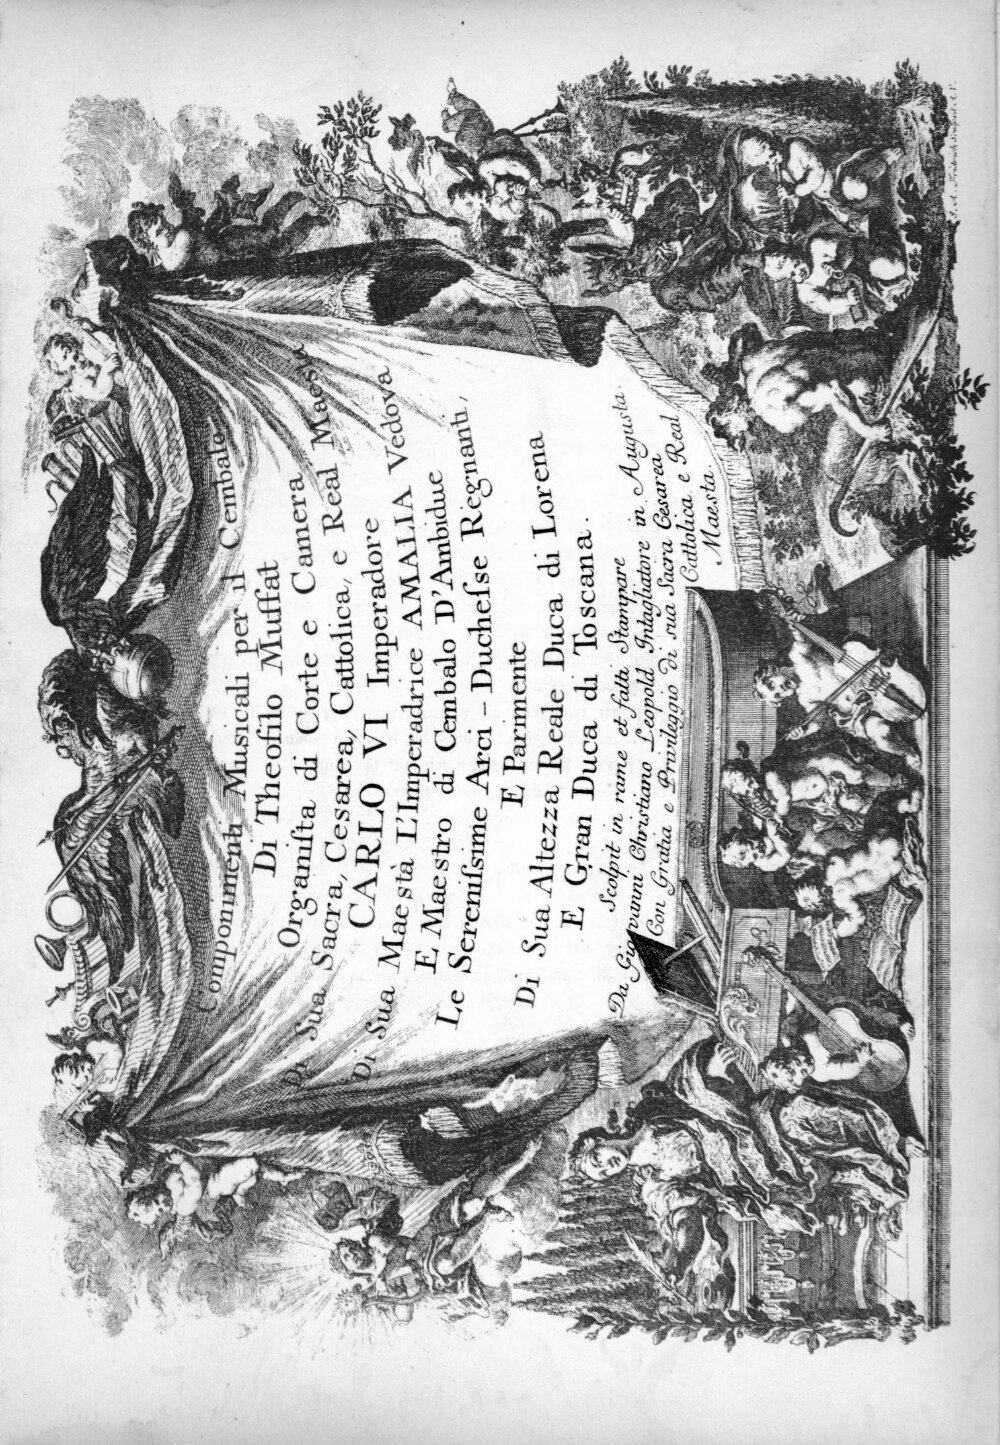 Componimenti Musicali per il Cembalo
Di Theofilo Muffat
Organiſta di Corte e Camera
Di Sua Sacra, Cesarea, Cattolica, e Real Maesta
CARLO VI Imperadore
Di Sua Maestà L'Imperadrice AMALIA Vedova
E Maestro di Cembalo D'Ambidue
Le Sereniſsime Arci-Ducheſse Regnanti,
E Parimente
Di Sua Altezza Reale Duca di Lorena
E Gran Duca di Toscana.
Scolpit in rame et fatti Stampare
Da Giovanni Christiano Leopold Intagliatore in Augusta
Con Gratia e Privileggio di sua Sacra Cesarea
Cattolica e Real
Maesta.